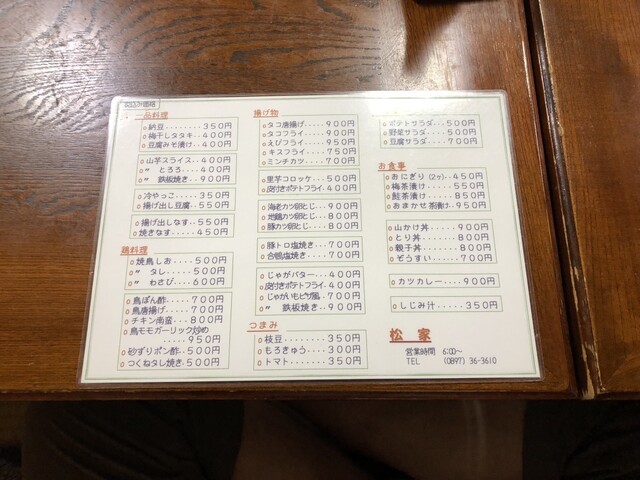 税込み価格
一品料理
納豆........350円
梅干しタタキ...400円
豆腐みそ漬け...400円
山芋スライス...400円
〃 とろろ....400円
〃 鉄板焼き...900円
冷やっこ.....350円
揚げ出し豆腐...550円
揚げ出しなす...550円
焼きなす.....450円
鶏料理
焼鳥しお.....500円
〃 タレ.....500円
〃 わさび....600円
鳥ぽん酢.....700円
鳥唐揚げ.....700円
チキン南蛮....800円
鳥モモガーリック炒め
......950円
砂ずりポン酢...500円
つくねタレ焼き.500円
揚げ物
タコ唐揚げ....900円
タコフライ....900円
えびフライ....950円
キスフライ....750円
ミンチカツ....700円
里芋コロッケ...500円
皮付きポテトフライ.400円
海老カツ卵とじ..900円
地鶏カツ卵とじ..800円
豚カツ卵とじ...800円
豚トロ塩焼き...700円
合鴨塩焼き....700円
じゃがバター...400円
皮付きポテトフライ.400円
じゃがいもピザ風.700円
〃 鉄板焼き..900円
つまみ
枝豆.......350円
もろきゅう....300円
トマト......350円
ポテトサラダ...500円
野菜サラダ....500円
豆腐サラダ....700円
お食事
おにぎり(2ヶ).450円
梅茶漬け.....550円
鮭茶漬け.....850円
おまかせ茶漬け..950円
山かけ丼.....900円
とり丼......800円
親子丼......800円
ぞうすい.....700円
カツカレー....900円
しじみ汁.....350円
松家
営業時間 6:00～
TEL (0897) 36-3610